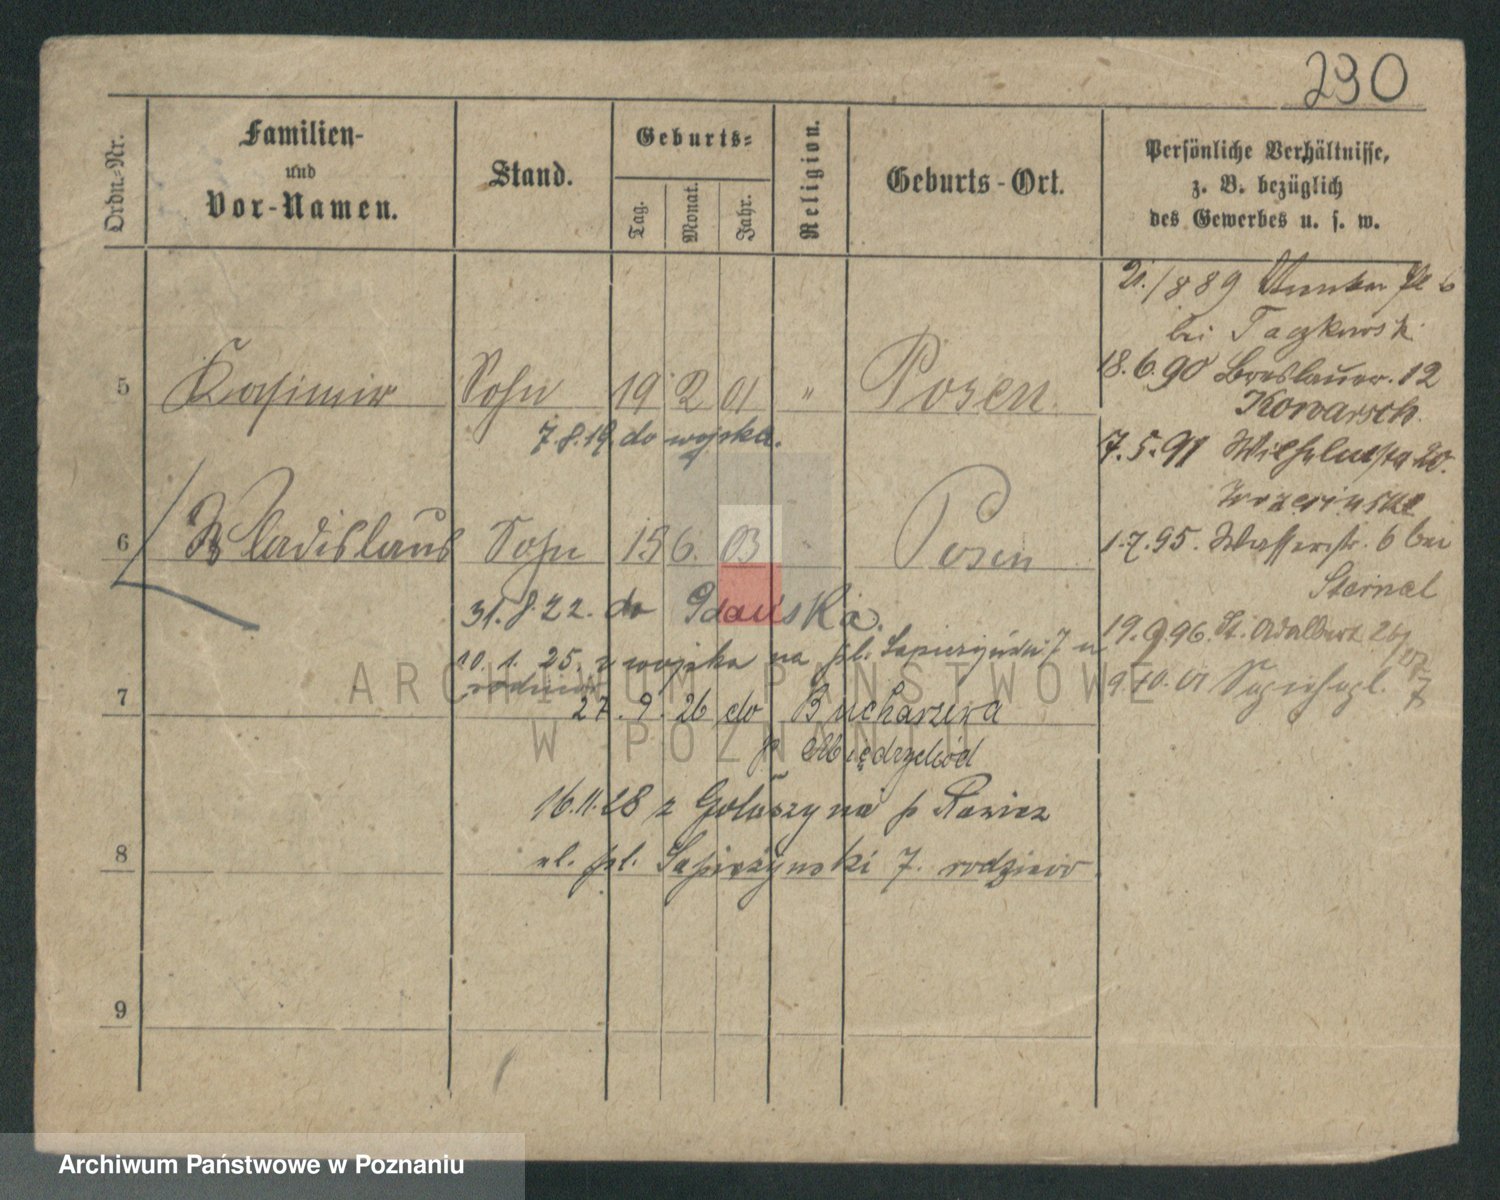 230
Ordn.-Nr.
Familien-
und
Vor-Namen.
Stand.
Geburts-
Tag.
Monat.
Jahr.
Religion.
Geburts-Ort.
Persönliche Verhältnisse,
z. B. bezüglich
des Gewerbes u. s. w.
21./889
bei Taczkowsk.
18.6.90 Breslauer. 12
Kowarsch
7.5.91 Wilhelmstr 20.
1.7.95. Wasserstr. 6 bei
Sternal
19.9 96. St. Adalbert 26/
9.10.01 Sapiehapl. 7
5 Kasimir Sohn 19 2 01 " Posen
7.8.19 do wojska.
6 Wladislaus Sohn 15 6. 03 Posen
31.8.22. do Gdańska.
10. 1. 25. z wojska na pl. Sapieżyński 7 u
rodziców
7 27. 9. 26 do Bucharzewa
p Międzychód
16.11.28 z Gołaszyna p Rawicz
8 ul. pl. Sapieżynski 7. rodziców
9
ARCHIWUM PAŃSTWOWE
W POZNANIU
Archiwum Państwowe w Poznaniu